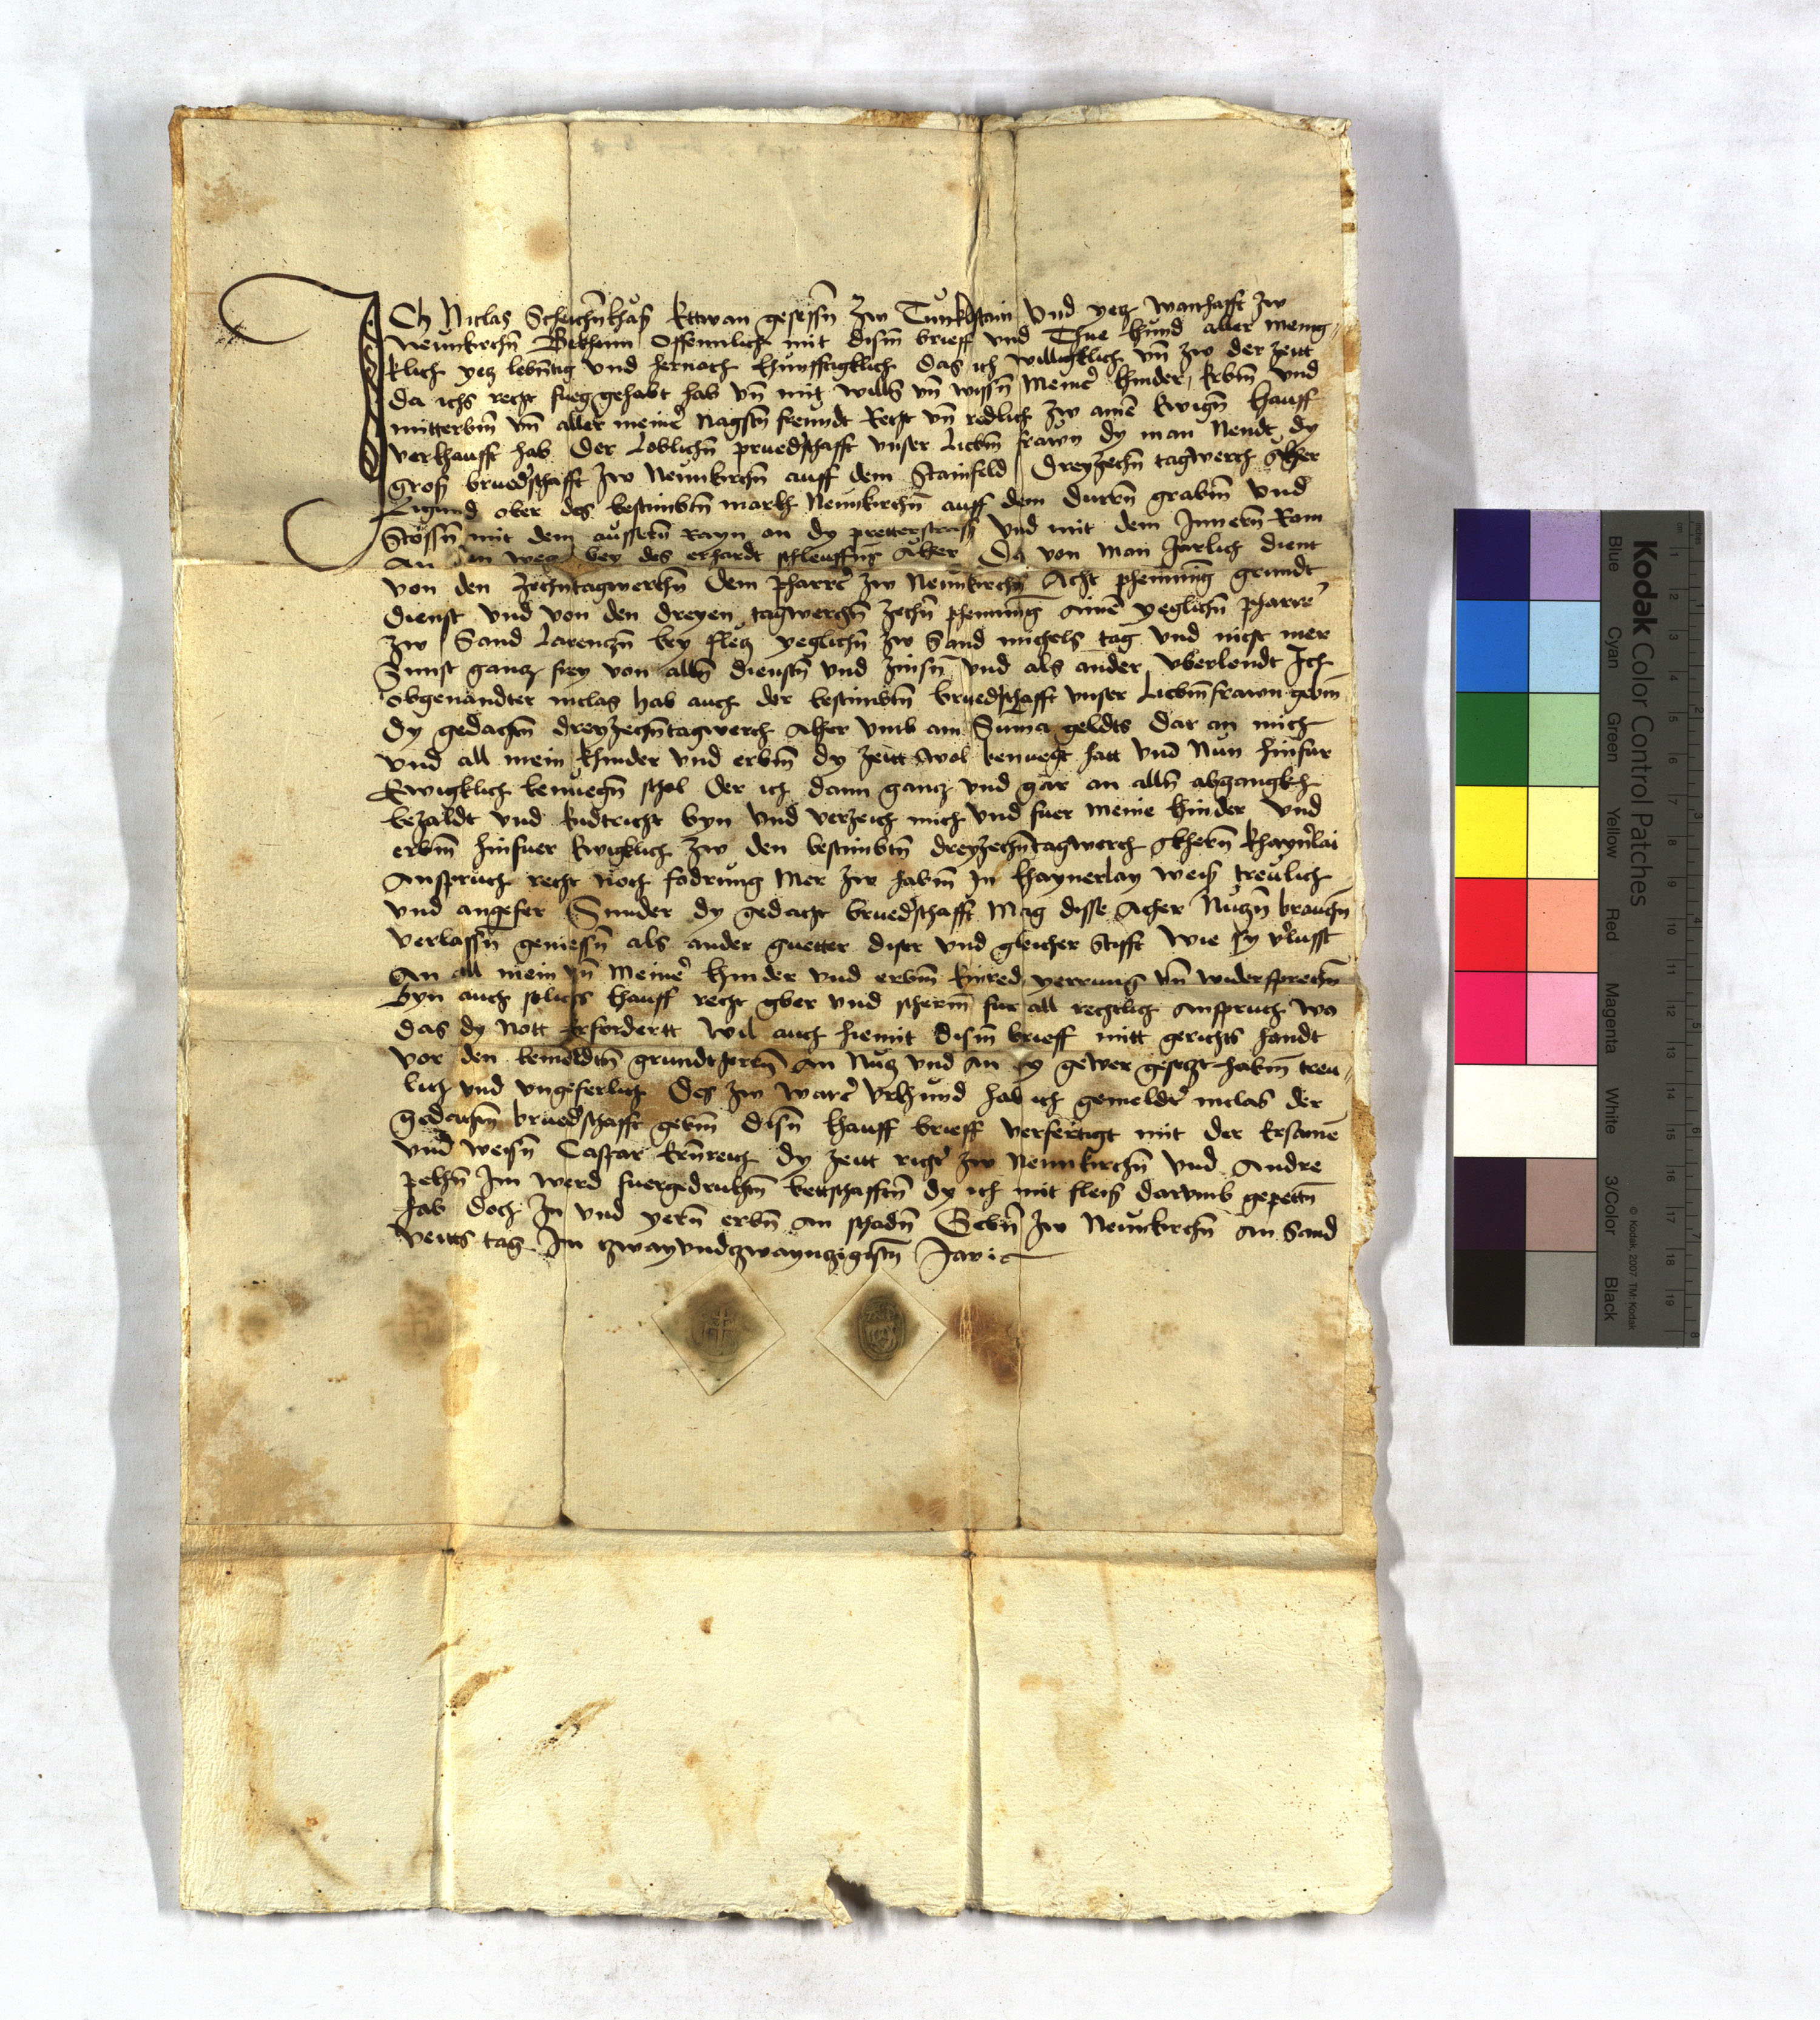 Ich Niclas Scheichnkhas Ettwan gesessn zw Tunkhstain Vnd yetz wanhafft zw
Neunkirchn Bekhenn Offennlich mit disem brieff vnd Thue khund aller menig,
klich yetz lebentig vnd hernach khunfftigklich das ich willigklich vn zw der zeitt
da ichs recht fueg gehabt hab vn mit willn vn wissn Meiner khinder, Erbm vnd
mitterbm vn aller meiner Nagstn freundt Recht vn redlich zw ainē Ewign khauff
verkhaufft hab Der Loblichn pruedschafft vnser Liebm frawn dy man Nendt dy
gros bruedschafft zw Neunkirchn auff dem Stainfeld Dreyzechn tagwerch Akher
Ligund ober des bestimbtn markh Neunkirchn auff dem durrn grabm vnd
Stossn mit dem aussern Rayn an dy pretterstrass vnd mit dem Innern Rain
An den weg bey des erhardt schleuffing Akher Da von man Jarlich dient
von den zechntagwerchn Dem pharrer zw Neunkirchn Acht phenning grundt,
dienst vnd von den dreyen tagwerchn zechn phenning Ainē yeglichn pharrer
zw Sand Larenczn bey fletz yeglichn zw Sand michels tag vnd nicht mer
Sunst gancz frey von alln dienstn vnd zinsn vnd als ander vberlendt Ich
obgenandter niclas hab auch der bestimbtn bruedschafft vnser Liebm frawn gebm
dy gedachtn dreyzechntagwerch Akher vmb ain Suma geldts dar an mich
vnd all mein khinder vnd erbm dy zeitt wol benuegt hatt vnd Nun hinfur
Ewigklich benuegn schol Der ich dann gancz vnd gar an alln abgangkh
bezaldt vnd Endtricht byn vnd verzeich mich vnd fuer meine khinder vnd
erbm hinfuer Ewigklich zw den bestimbtn dreyzechntagwerch Akhern khaynlai
Anspruch recht noch fodrung Mer zw habm In khaynerlay weis treulich
vnd angefer Sunder dy gedacht bruedschafft Mag disse Acher Nuczn brauchn
verlassn geniessn als ander guetter diser vnd gleicher Stifft Wie sy verlusst
An all mein vn Meiner khinder vnd erbm Einred yerrung vn widersprechn
Byn auch solichs khauff recht gwer vnd scherm fur all rechtlich Anspruch wo
das dy Nott Erfordertt Wil auch hiemit dism brieff mitt gerichts handt
vor den bemeldtn grundthern An Nutz vnd An sy gewer gesetzt habm treu,
lich vnd vngeferlich Des zw warer vrkhund hab ich gemeldter niclas der
gedachtn bruedschafft gebm disn khauff brieff verfertigt mit der Ersamē
vnd weisn Caspar Ernreich dy zeitt richter zw Neunkirchn vnd Andre
pekhn Im werd fuergedrukhtn bettschafftn dy ich mit fleis darumb gepettn
hab Doch In vnd yern erbn An schadn Gebn zw Neunkirchn An Sand
veitts tag Im zwayvndzwaynzigistn Jar ic
Kodak Color Control Patches
Blue Cyan Green Yellow Red Magenta White 3/Color Black
© Kodak, 2007 TM: Kodak